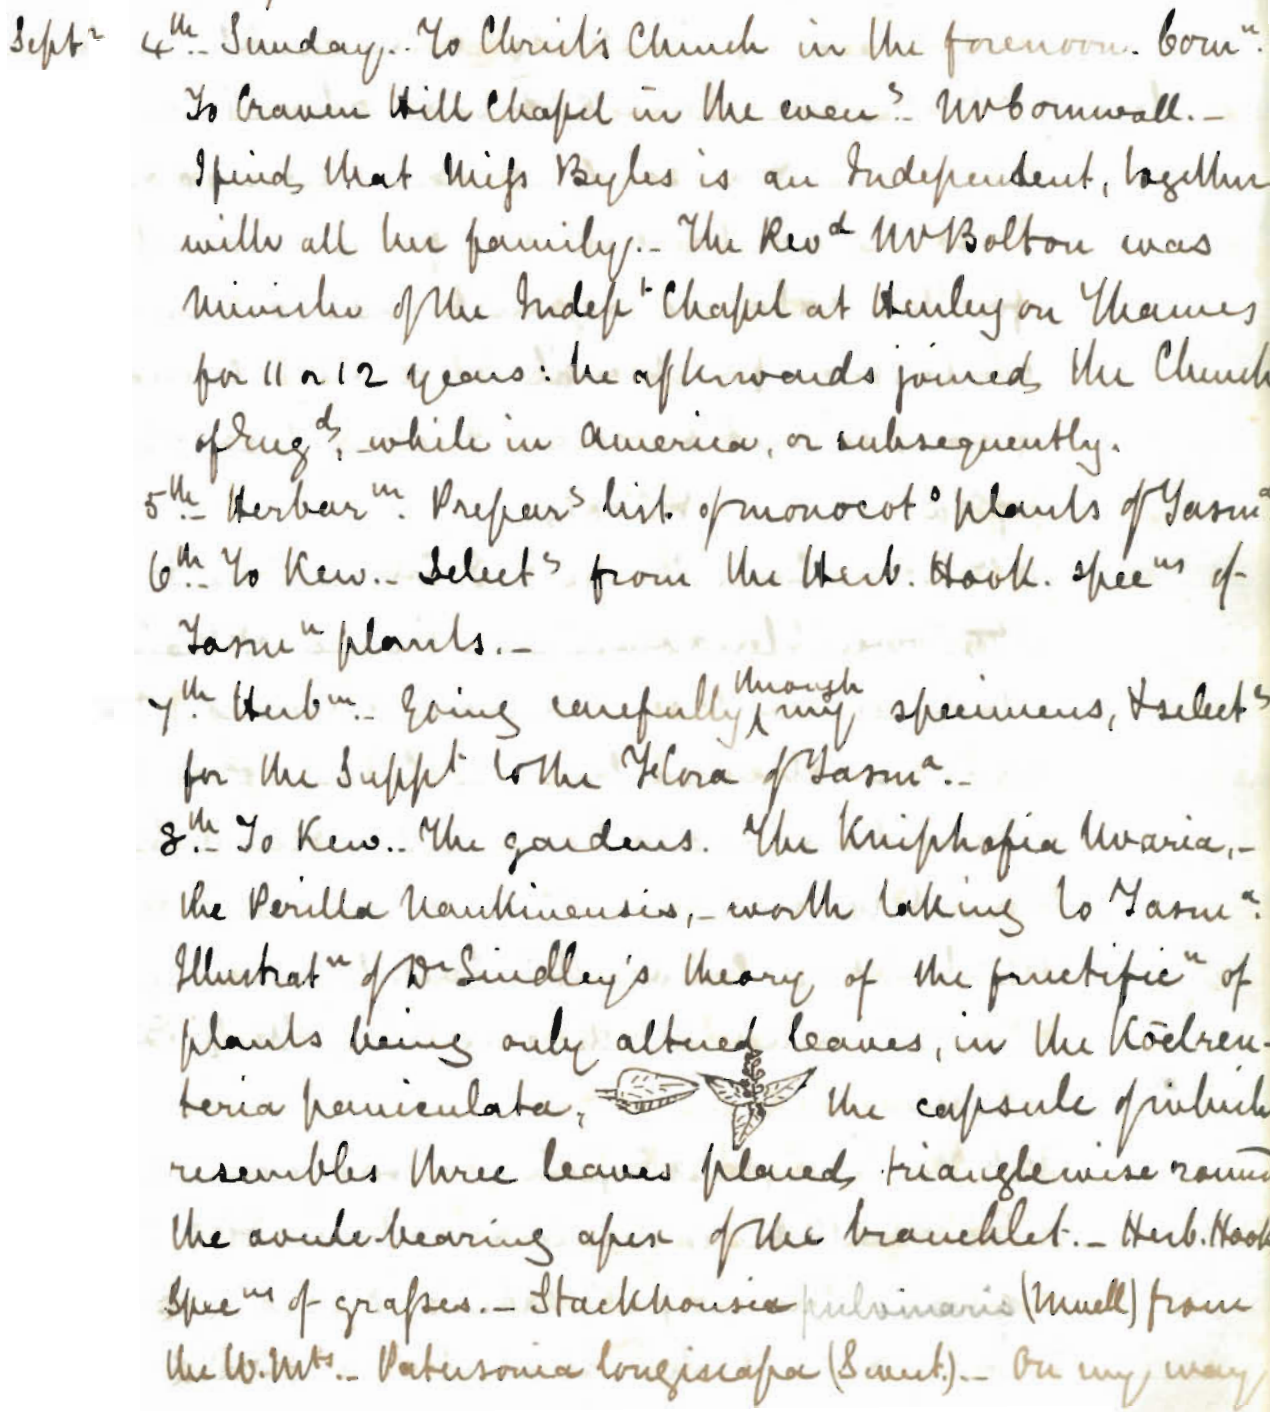 Septr 4th.- Sunday.. To Christ's Church in the forenoon. Comn.
To Craven Hill Chapel in the eveng.- Mr Cornwall.-
I find that Miss Byles is an Independent, together
with all her family.- The Revd Mr Bolton was
Minister of the Indept Chapel at Henley on Thames
for 11 or 12 years: he afterwards joined the Church
of Engd, while in America, or subsequently.
5th.- Herbarm. Preparg list of monocots plants of Tasma
6th.- To Kew.. Selectg from the Herb. Hook. specns of
Tasmn plants.-
7th. Herbm.- Going carefully through my specimens, & selectg
for the Suppt to the Flora of Tasma.-
8th.- To Kew.. The gardens. The Kniphofia Uvaria,-
the Perilla Nankinensis,- worth taking to Tasma.
Illustratn of Dr Lindley's theory of the fructificn of
plants being only altered leaves, in the Köelreu-
teria paniculata, the capsule of which
resembles three leaves placed trianglewise round
the ovule-bearing apex of the branchlet.- Herb. Hook
Specns of grasses.- Stackhousia pulvinaris (Muell) from
the W. Mts.- Patersonia longiscapa (Sweet).- On my way